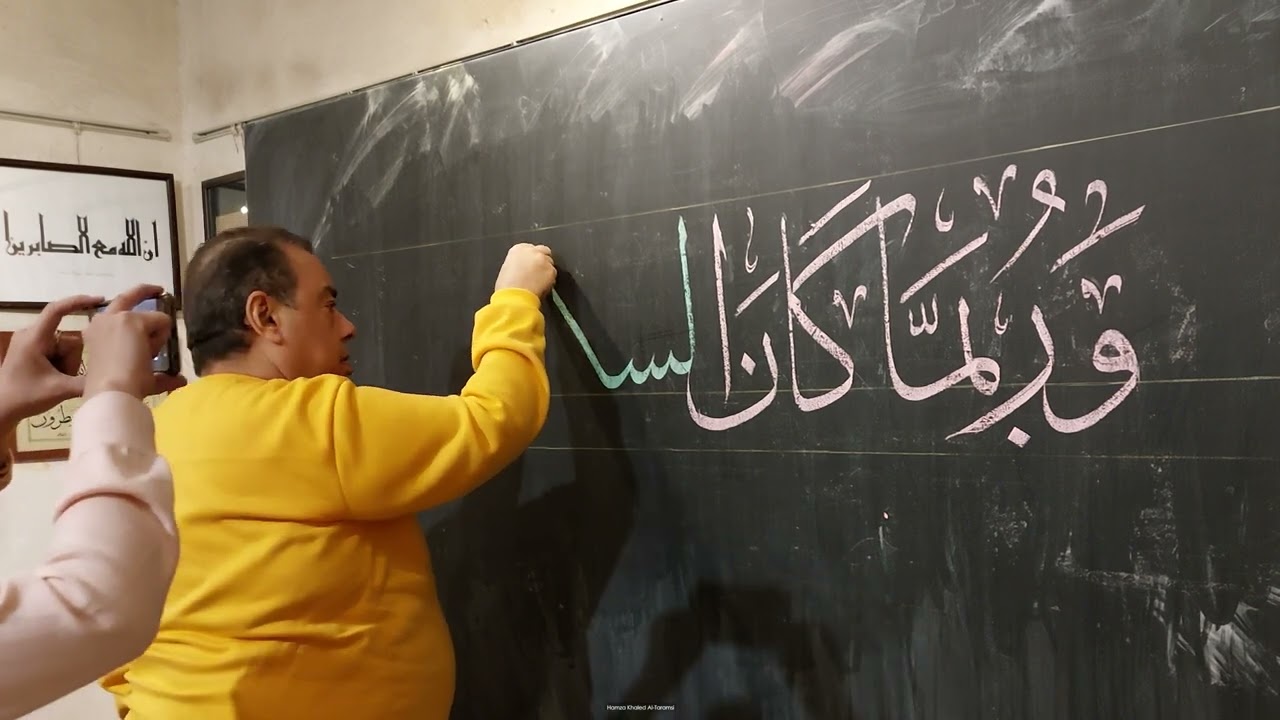 وَرُبَّمَا كَانَ السـ
ان الله مع الصابرين
Hamza Khaled Al-Taramsi